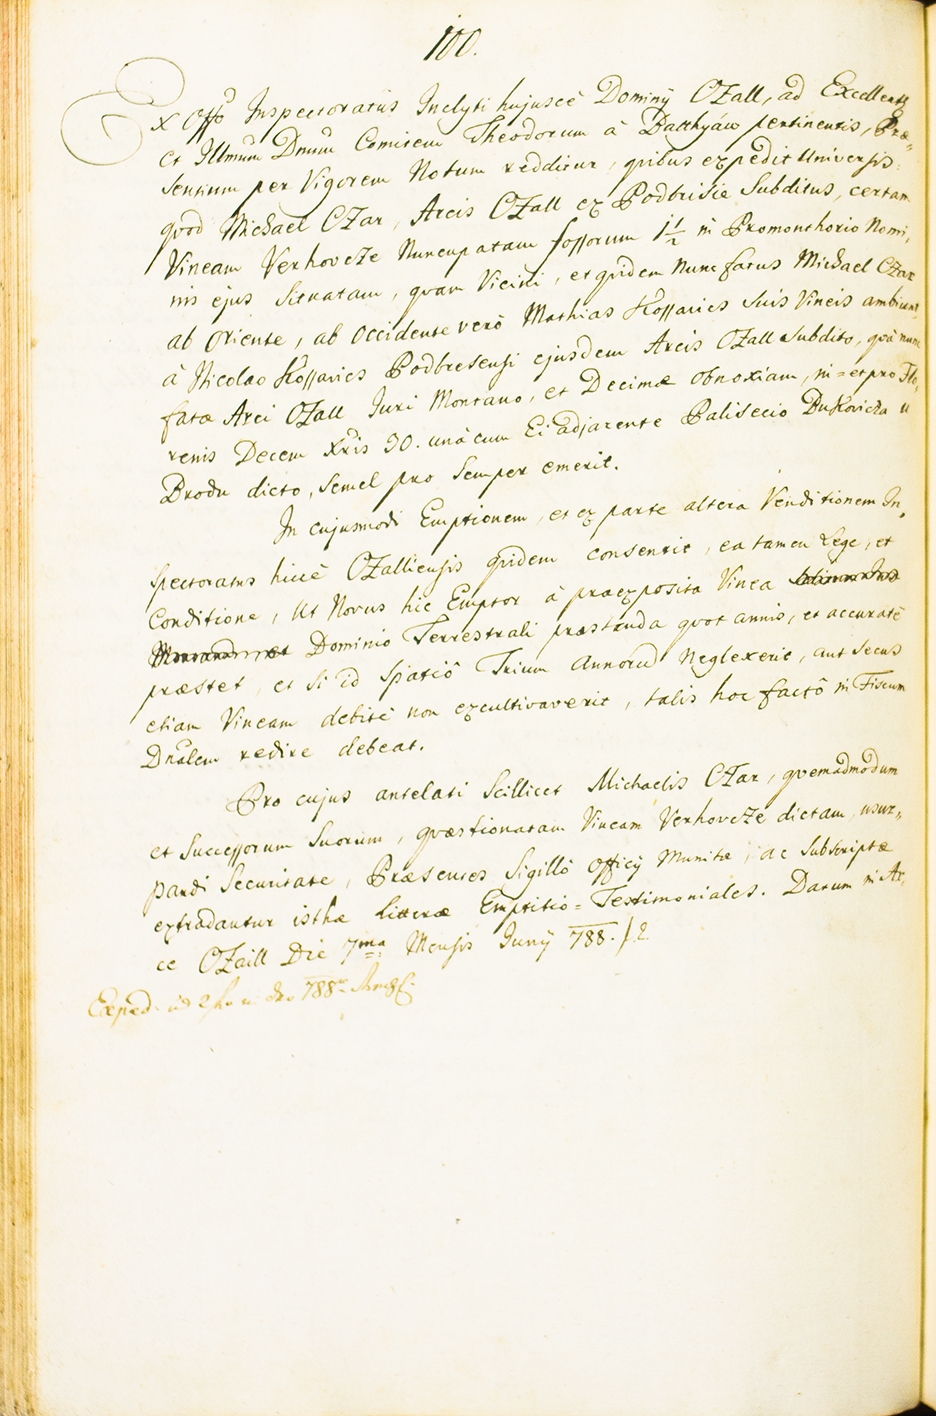 100.
Ex Offo Inspectoratûs Inclyti hujusce Dominÿ OZall, ad Excellent.
et Illmum Dnum Comitem Theodorum à Batthyán pertinentis, Præ„
sentium per Vigorem Notum redditur, quibus expedit Universis:
quod Michael CZar, Arcis OZall ex Podbrisie Subditus, certam
Vineam VerhovcZe Nuncupatam fossorum 1½ in Promonthorio Nomi„
nis ejus Situatam, quam Vicini, et quidem Nunc fatus Michael CZar
ab Oriente, ab Occidente verò Mathias Kossarics Suis Vineis ambiunt,
à Nicolao Kossarics Podbresensi ejusdem Arcis OZall Subdito, quà nunc
fatæ Arci OZall Juri Montano, et Decimæ obnoxiam, in = et pro Flo„
renis Decem Xris 30. unà cum Ei adjacente Palisecio Dukovicza u
Brodu dicto, Semel pro Semper emerit.
In cujusmodi Emptionem, et ex parte altera Venditionem In„
spectoratus hicce OZalliensis quidem consentit, ea tamen Lege, et
Conditione, Ut Novus hic Emptor à præexposita Vinea
Dominio Terrestrali præstanda quot annis, et accuratè
præstet, et Si id Spatiô Trium Annorum Neglexerit, aut Secus
etiam Vineam debitè non excultivaverit, talis hoc factô in Fiscum
Dnalem redire debeat.
Pro cujus antelati Scillicet Michaelis CZar, quemadmodum
et Successorum Suorum, quæstionatam Vineam VerhovcZe dictam, usur„
pandi Securitate, Præsentes Sigillô Officÿ Munitæ, ac Subscriptæ
extradantur isthæ Litteræ Emptitio = Testimoniales. Datum in Ar„
ce OZaill Die 7ma Mensis Junÿ 788.
Exped.